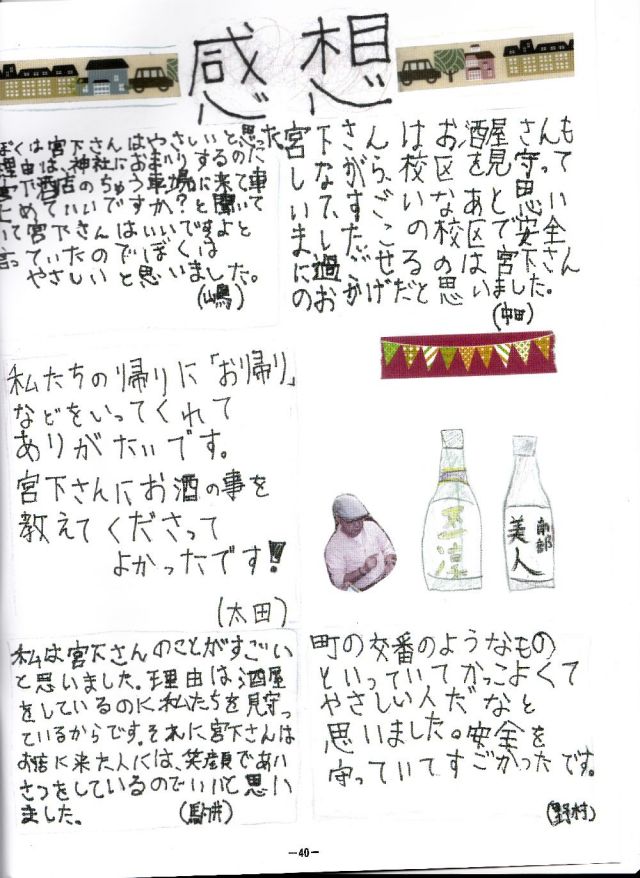 感想
宮下さんはお酒屋さんも
しながら、校区を見守って
いて、すごいなあと思い
ました。この校区で安全
に過ごせるのは宮下さん
のおかげだと思いました。
(中田)
ぼくは宮下さんはやさしいと思った
理由は、神社におまいりするのた
宮下酒店のちゅう車場に来て車
止めていいですか？と聞いて
いて宮下さんはいいですよと
言っていたのでぼくは
やさしいと思いました。
(嶋)
私たちの帰りに「お帰り」
などをいってくれて
ありがたいです。
宮下さんにお酒の事を
教えてくださって
よかったです!
(太田)
南部
美人
私は宮下さんのことがすごい
と思いました。理由は酒屋
をしているのに私たちを見守っ
ているからです。それに宮下さんは
お店に来た人には、笑顔であい
さつをしているのでいいと思い
ました。 (駒井)
町の交番のようなもの
といっていてかっこよくて
やさしい人だなと
思いました。安全を
守っていてすごかったです。
(野村)
-40-